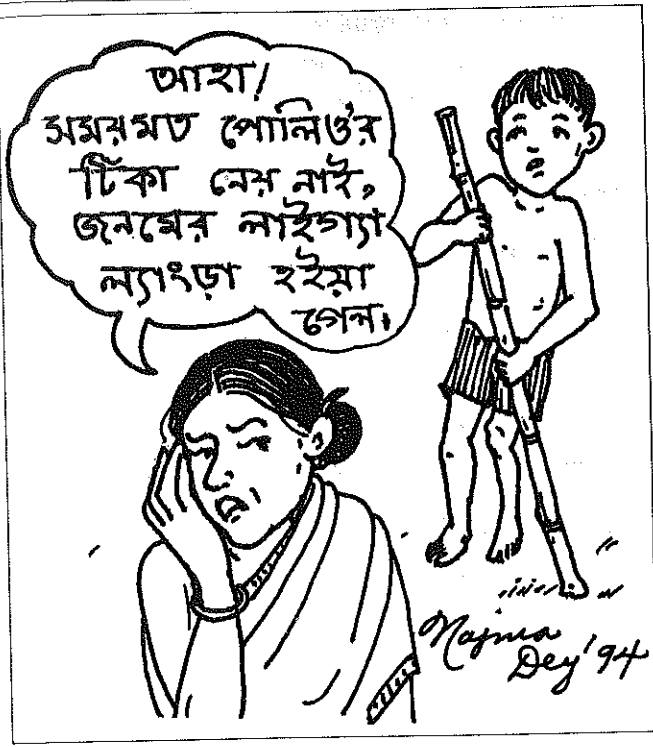 আহা!
সময়মত পোলিও'র
টিকা নেয় নাই,
জনমের লাইগ্যা
ল্যাংড়া হইয়া
গেল।
Najma
Dey '94